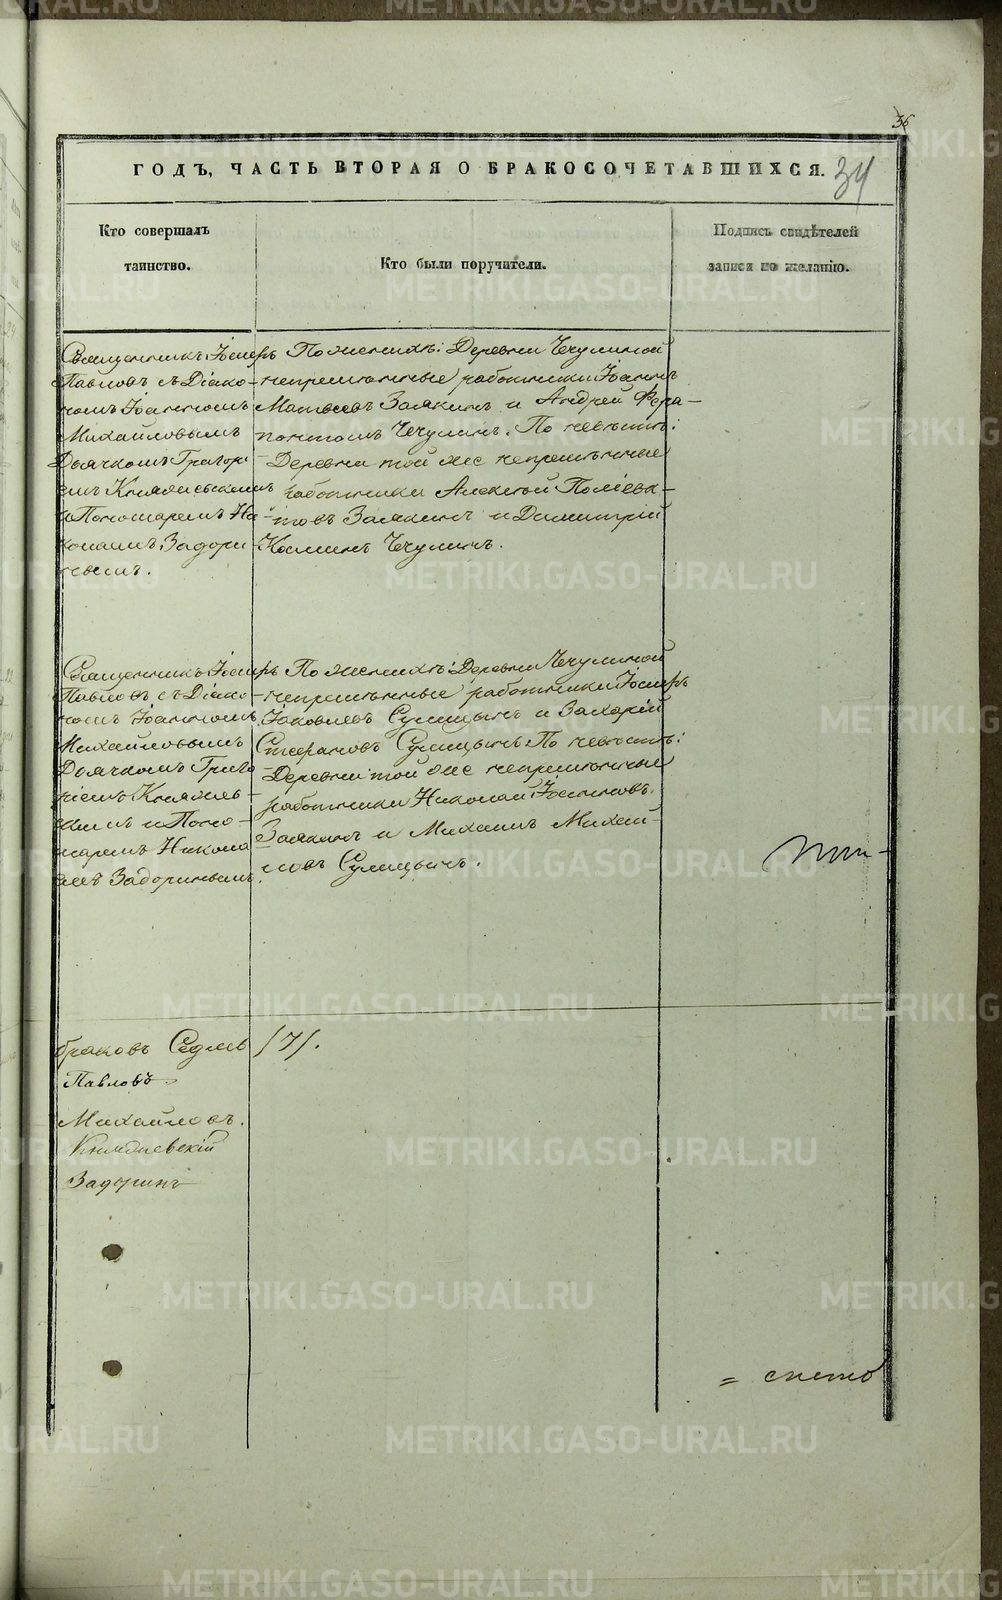 36
ГОДЪ, ЧАСТЬ ВТОРАЯ О БРАКОСОЧЕТАВШИХСЯ.
34
Кто совершалъ
таинство.
Кто были поручители.
Подпись свидѣтелей
записи по желанію.
Священникъ Іосифъ
Павловъ съ Діако-
номъ Іоанномъ
Михайловымъ
Дьячкомъ Григорі-
емъ Княжевскимъ
и Пономаремъ Ни-
колаемъ Задори-
нымъ.
По женихѣ: Деревни Чечулиной
непремѣнные работники Іоаннъ
Матвеевъ Заякинъ и Андрей Фера-
понтомъ Чечулинъ. По невѣстѣ:
Деревни той же непремѣнные
работники Алексѣй Поліевк-
товъ Заякинъ и Димитрій
Козминъ Чечулинъ.
Священникъ Іосифъ
Павловъ съ Діако-
номъ Іоанномъ
Михайловымъ
Дьячкомъ Григо-
ріемъ Княжев-
скимъ и Поно-
маремъ Никола
емъ Задоринымъ.
По женихѣ: Деревни Чечулиной
непремѣнные работники Іосифъ
Іаковлевъ Сулицынъ и Захарій
Стефановъ Сулицынъ По невѣстѣ:
Деревни той же непремѣнные
работники Николай
Заякинъ и Михаилъ Михай-
ловъ Сулицынъ.
браковъ Седмь /7/.
Павловъ
Михайловъ.
Княжевскій
Задоринъ
=
METRIKI.GASO-URAL.RU